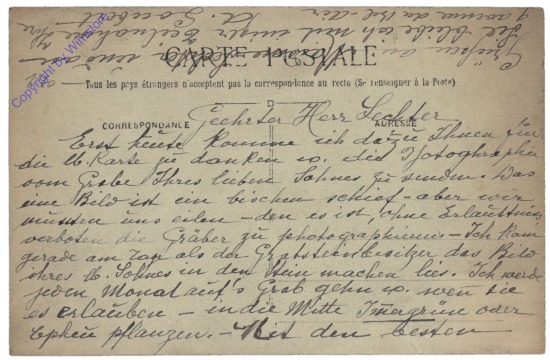 Grüssen an
bleibe ich mit inniger Teilnahme Ihre
CARTE POSTALE
Tous les pays étrangers n'acceptent pas la correspondance au recto (Se renseigner à la Poste)
CORRESPONDANCE
ADRESSE
Geehrter Herr Lechter
Erst heute komme ich dazu Ihnen für
die lb. Karte zu danken u. die Photographie
vom Grabe Ihres lieben Sohnes zu senden. Das
eine Bild ist ein bischen schief - aber wir
mussten uns eilen - den es ist, ohne Erlaubtniss,
verboten die Gräber zu photographieren - Ich kam
gerade am Tag als der Grabsteinbesitzer das Bild
ihres lb. Sohnes in den Stein machen lies. Ich werde
jeden Monat auf's Grab gehn u. wen sie
es erlauben - in die Mitte Immergrüne oder
Epheu pflanzen. - Mit den besten
Copyright by Winston